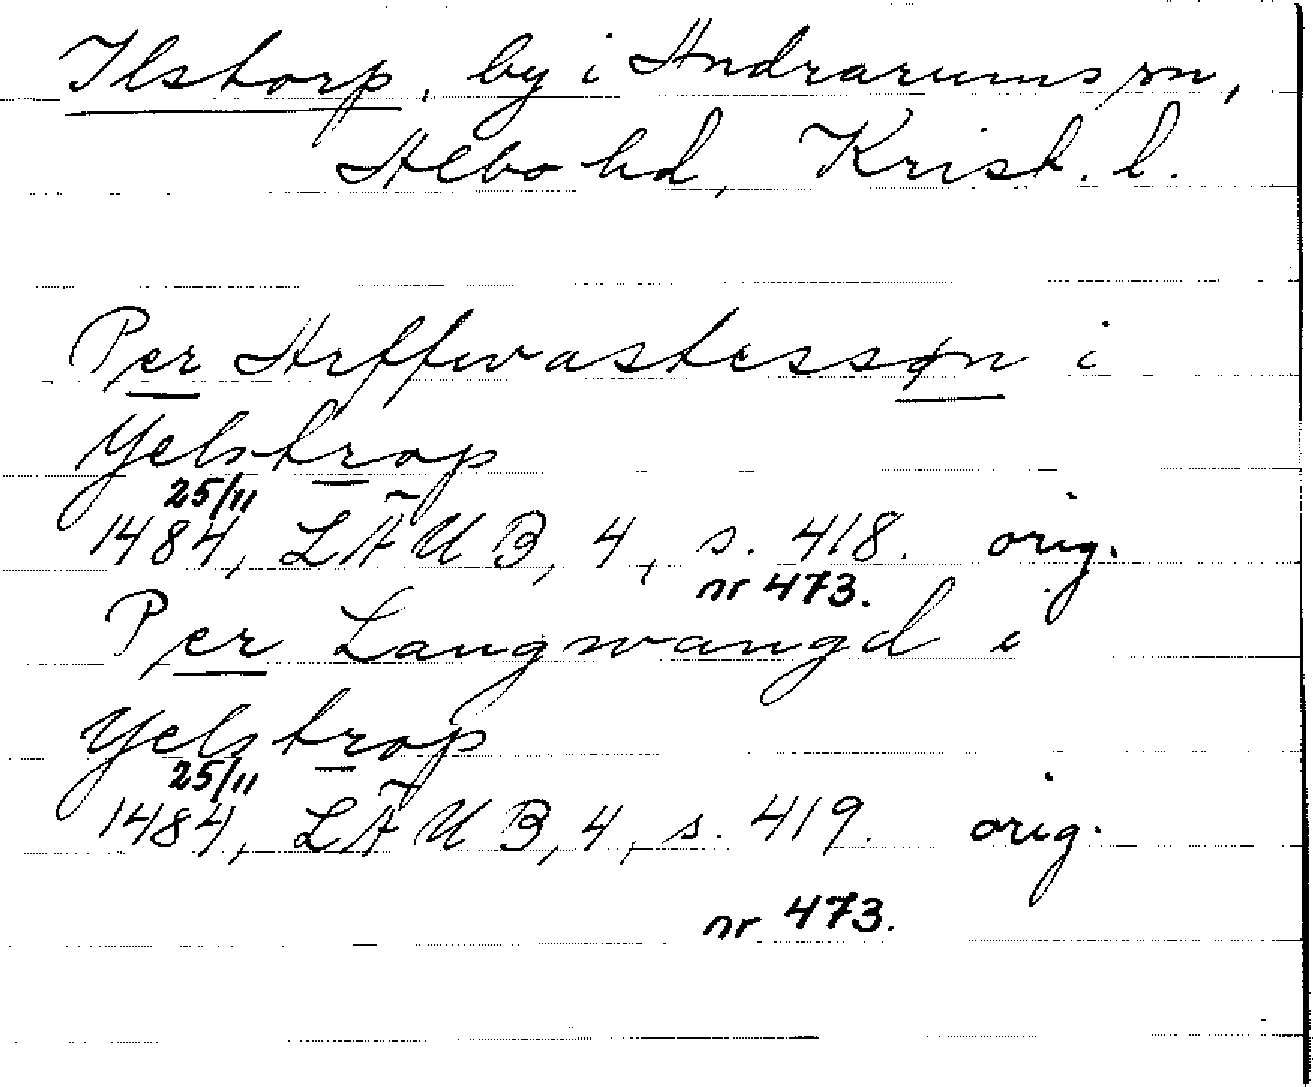 Ilstorp, by i Andrarums sn,
Albo hd, Krist. l.
Per Arffwastessøn i
Yelstrop
25/11
1484, LÄUB, 4, s. 418. orig.
nr 473.
Per Langwangd i
Yelstrop
25/11
1484, LÄUB, 4, s. 419. orig.
nr 473.